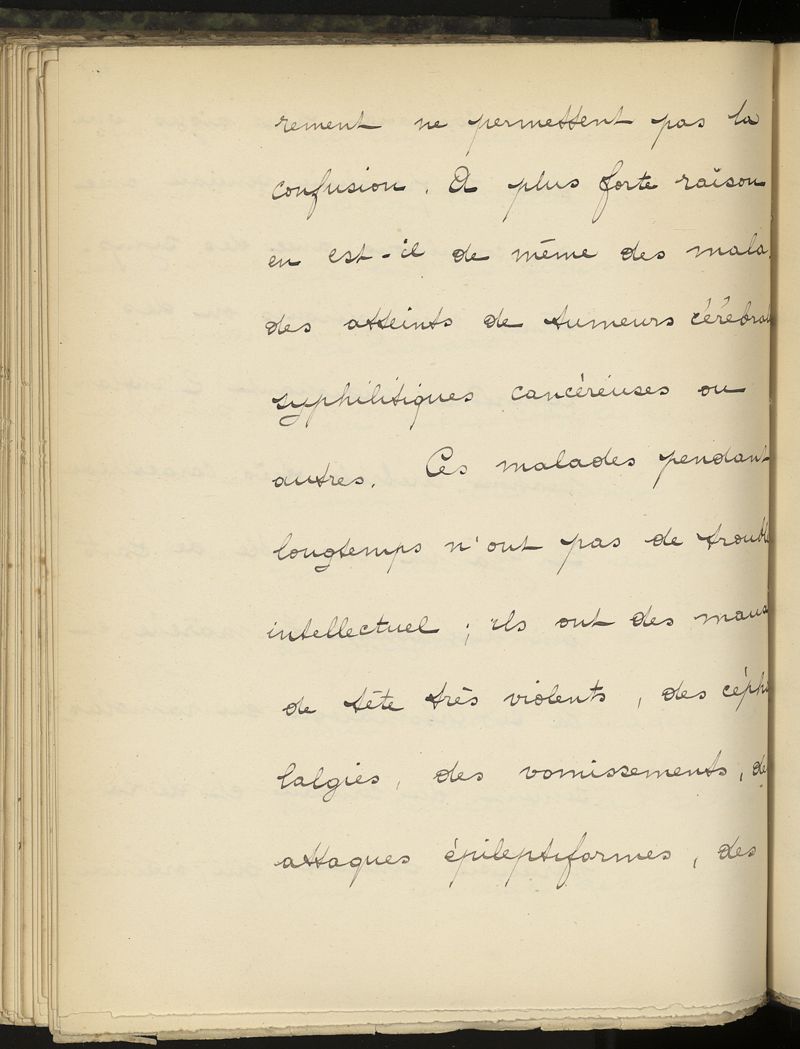 rement ne permettent pas la
confusion. A plus forte raison
en est-il de même des mala
des atteints de tumeurs cérébral
syphilitiques cancéreuses ou
autres. Ces malades pendant
longtemps n'ont pas de troubl
intellectuel ; ils ont des maux
de tête très violents, des céph
lalgies, des vomissements, de
attaques épileptiformes, des